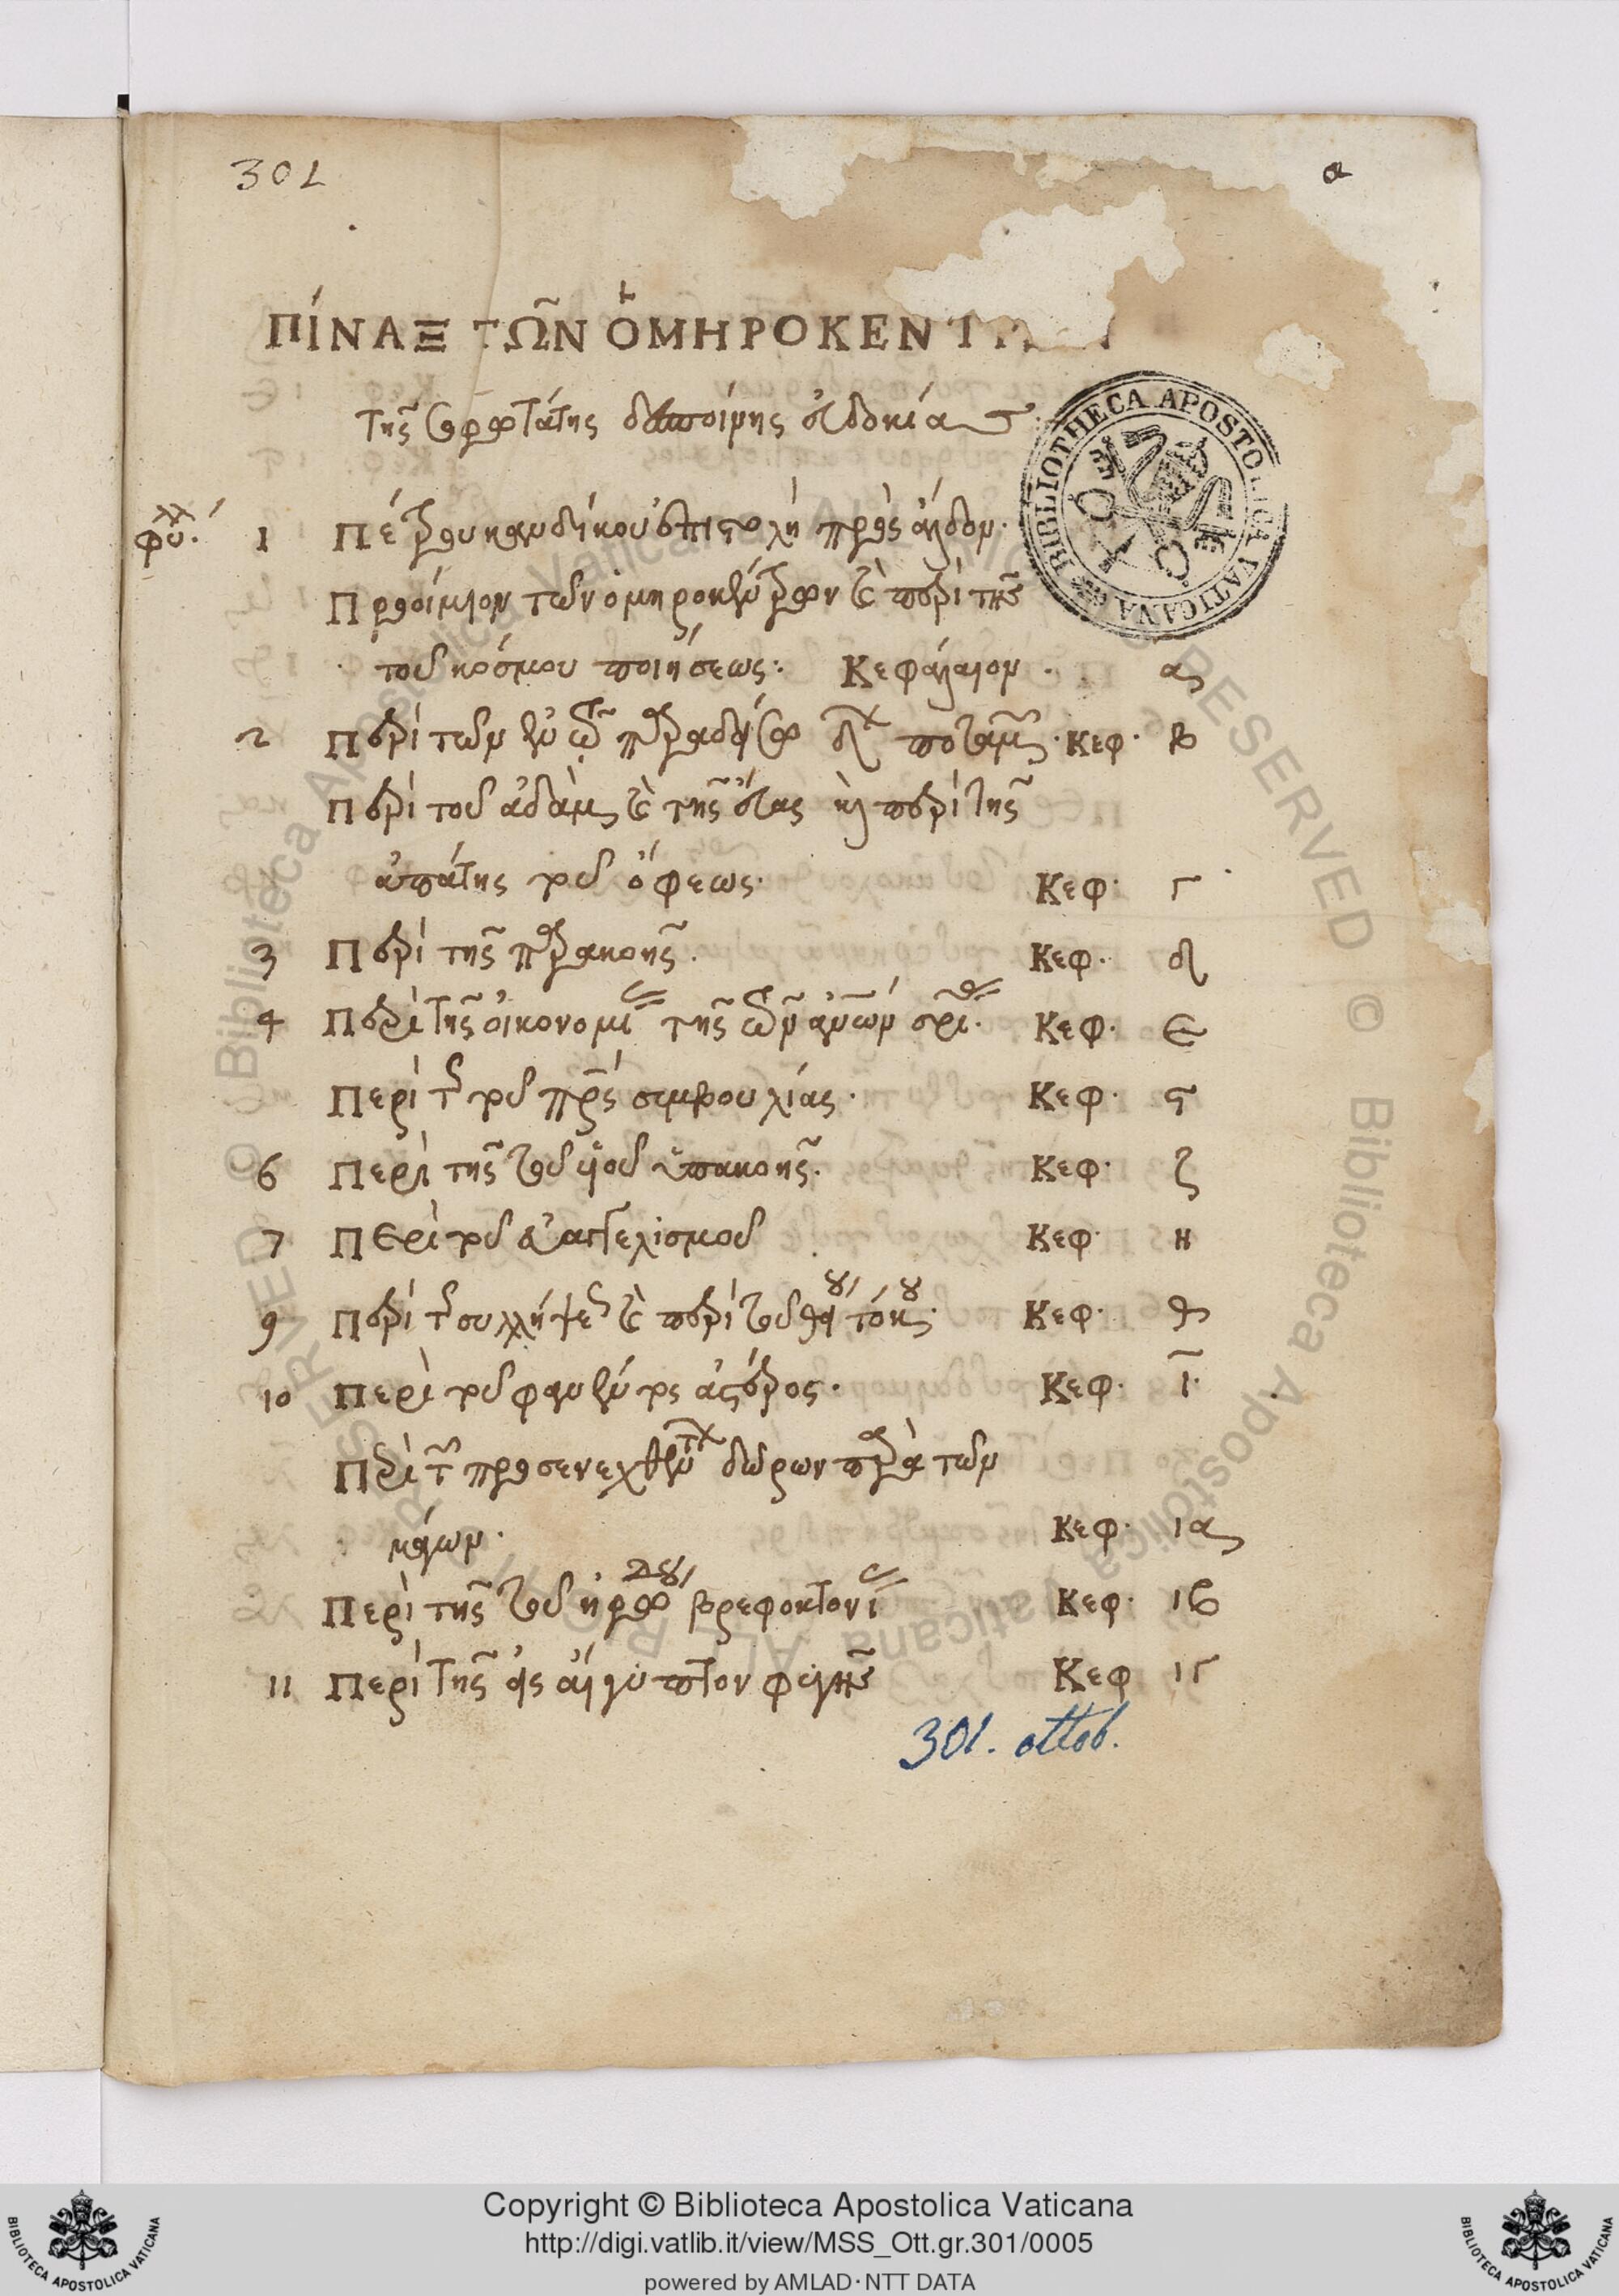 301
α
ΠΊΝΑΞ ΤΩ͂Ν ὉΜΗΡΟΚΕΝΤΡ
τῆς σοφωτάτης δεσποίνης εὐδοκίας
φύλλ. 1 Πέτρου κανδήκου ἐπιστολὴ πρὸς
Προοίμιον τῶν ὁμηροκέντρων καὶ περὶ τῆς
τοῦ κόσμου ποιήσεως: Κεφάλαιον. α
2 Περὶ τῶν ἐν τῷ παραδείσῳ δ ποταμῶν. κεφ. β
Περὶ τοῦ ἀδὰμ καὶ τῆς εὔας καὶ περὶ τῆς
ἀπάτης τοῦ ὄφεως. Κεφ. γ
3 Περὶ τῆς παρακοῆς. Κεφ. δ
4 Περὶ τῆς οἰκονομίας τῆς τῶν ἀνων σρίας. Κεφ. ε
Περὶ τῆς τοῦ πρς συμβουλίας. Κεφ. ς
6 Περὶ τῆς τοῦ υἱοῦ ὑπακοῆς. Κεφ. ζ
7 Περὶ τοῦ εὐαγγελισμοῦ Κεφ. η
9 Περὶ τῆς συλλήψεως καὶ περὶ τοῦ θείου τόκου. Κεφ. θ
10 Περὶ τοῦ φανέντος ἀστέρος. Κεφ. ι
Περὶ τῶν προσενεχθέντων δώρων παρὰ τῶν
μάγων. Κεφ. ια
Περὶ τῆς τοῦ ἡρώδου βρεφοκτονίας Κεφ. ιβ
11 Περὶ τῆς εἰς αἴγυπτον φυγῆς Κεφ ιγ
301. ottob.
BIBLIOTHECA APOSTOLICA VATICANA
© Biblioteca Apostolica Vaticana ALL RIGHTS RESERVED
Copyright © Biblioteca Apostolica Vaticana
http://digi.vatlib.it/view/MSS_Ott.gr.301/0005
powered by AMLAD·NTT DATA
BIBLIOTECA APOSTOLICA VATICANA
BIBLIOTECA APOSTOLICA VATICANA